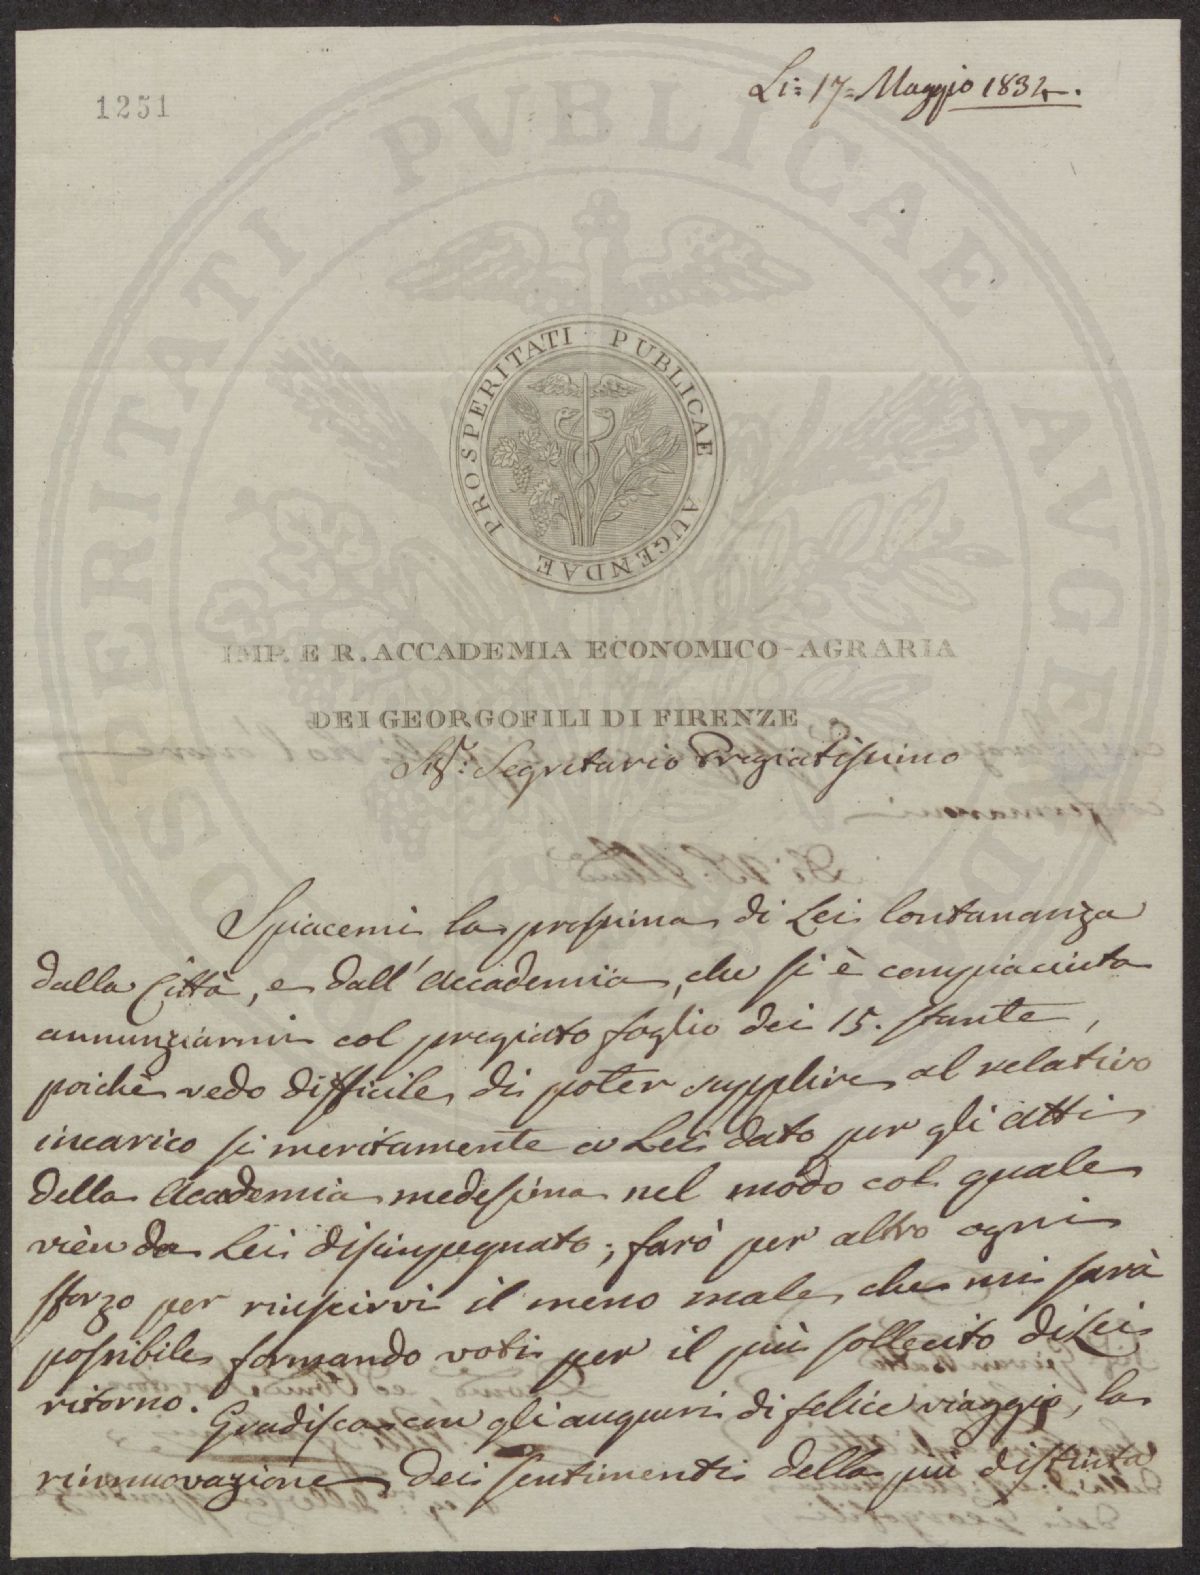 Li: 17= Maggio 1834.
1251
PROSPERITATI PUBLICAE AUGENDAE
IMP. E R. ACCADEMIA ECONOMICO-AGRARIA
DEI GEORGOFILI DI FIRENZE
Sigr: Segretario Pregiatissimo
Spiacemi la prossima di Lei lontananza
dalla Città, e dall'Accademia, che si è compiaciuta
annunziarmi col pregiato foglio dei 15. stante,
poichè vedo difficile di poter supplire al relativo
incarico si meritamente a Lei dato per gli Atti
della Accademia medesima nel modo col quale
vièn da Lei disimpegnato; farò per altro ogni
sforzo per riuscirvi il meno male che mi sarà
possibile formando voti per il più sollecito di Lei
ritorno.
Gradisca con gli auguri di felice viaggio, la
rinnuovazione dei sentimenti della più distinta
PROSPERITATI PVBLICAE AVGENDAE